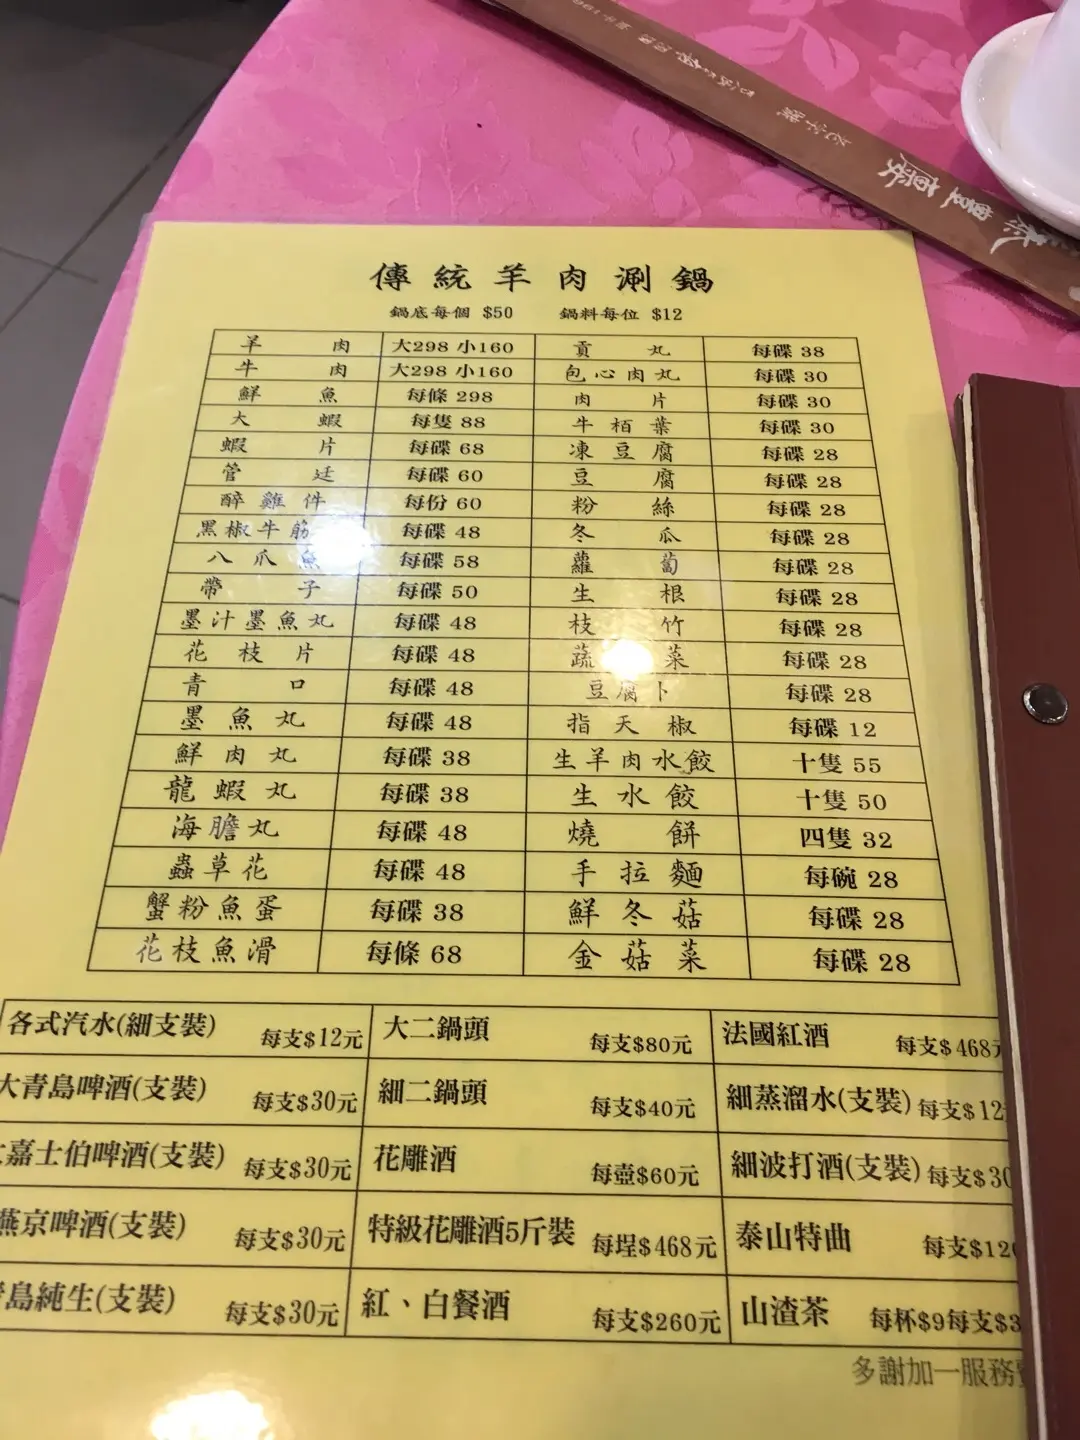 泰豐廔
傳統羊肉涮鍋
鍋底每個 $50 鍋料每位 $12
羊肉 大298 小160 貢丸 每碟 38
牛肉 大298 小160 包心肉丸 每碟 30
鮮魚 每條 298 肉片 每碟 30
大蝦 每隻 88 牛栢葉 每碟 30
蝦片 每碟 68 凍豆腐 每碟 28
管廷 每碟 60 豆腐 每碟 28
醉雞件 每份 60 粉絲 每碟 28
黑椒牛筋 每碟 48 冬瓜 每碟 28
八爪魚 每碟 58 蘿蔔 每碟 28
帶子 每碟 50 生根 每碟 28
墨汁墨魚丸 每碟 48 枝竹 每碟 28
花枝片 每碟 48 蔬菜 每碟 28
青口 每碟 48 豆腐卜 每碟 28
墨魚丸 每碟 48 指天椒 每碟 12
鮮肉丸 每碟 38 生羊肉水餃 十隻 55
龍蝦丸 每碟 38 生水餃 十隻 50
海膽丸 每碟 48 燒餅 四隻 32
蟲草花 每碟 48 手拉麵 每碗 28
蟹粉魚蛋 每碟 38 鮮冬菇 每碟 28
花枝魚滑 每條 68 金菇菜 每碟 28
各式汽水(細支裝) 每支$12元 大二鍋頭 每支$80元 法國紅酒 每支$468元
大青島啤酒(支裝) 每支$30元 細二鍋頭 每支$40元 細蒸溜水(支裝) 每支$12
嘉士伯啤酒(支裝) 每支$30元 花雕酒 每壺$60元 細波打酒(支裝) 每支$30
燕京啤酒(支裝) 每支$30元 特級花雕酒5斤裝 每埕$468元 泰山特曲 每支$120
島純生(支裝) 每支$30元 紅、白餐酒 每支$260元 山渣茶 每杯$9每支$3
多謝加一服務